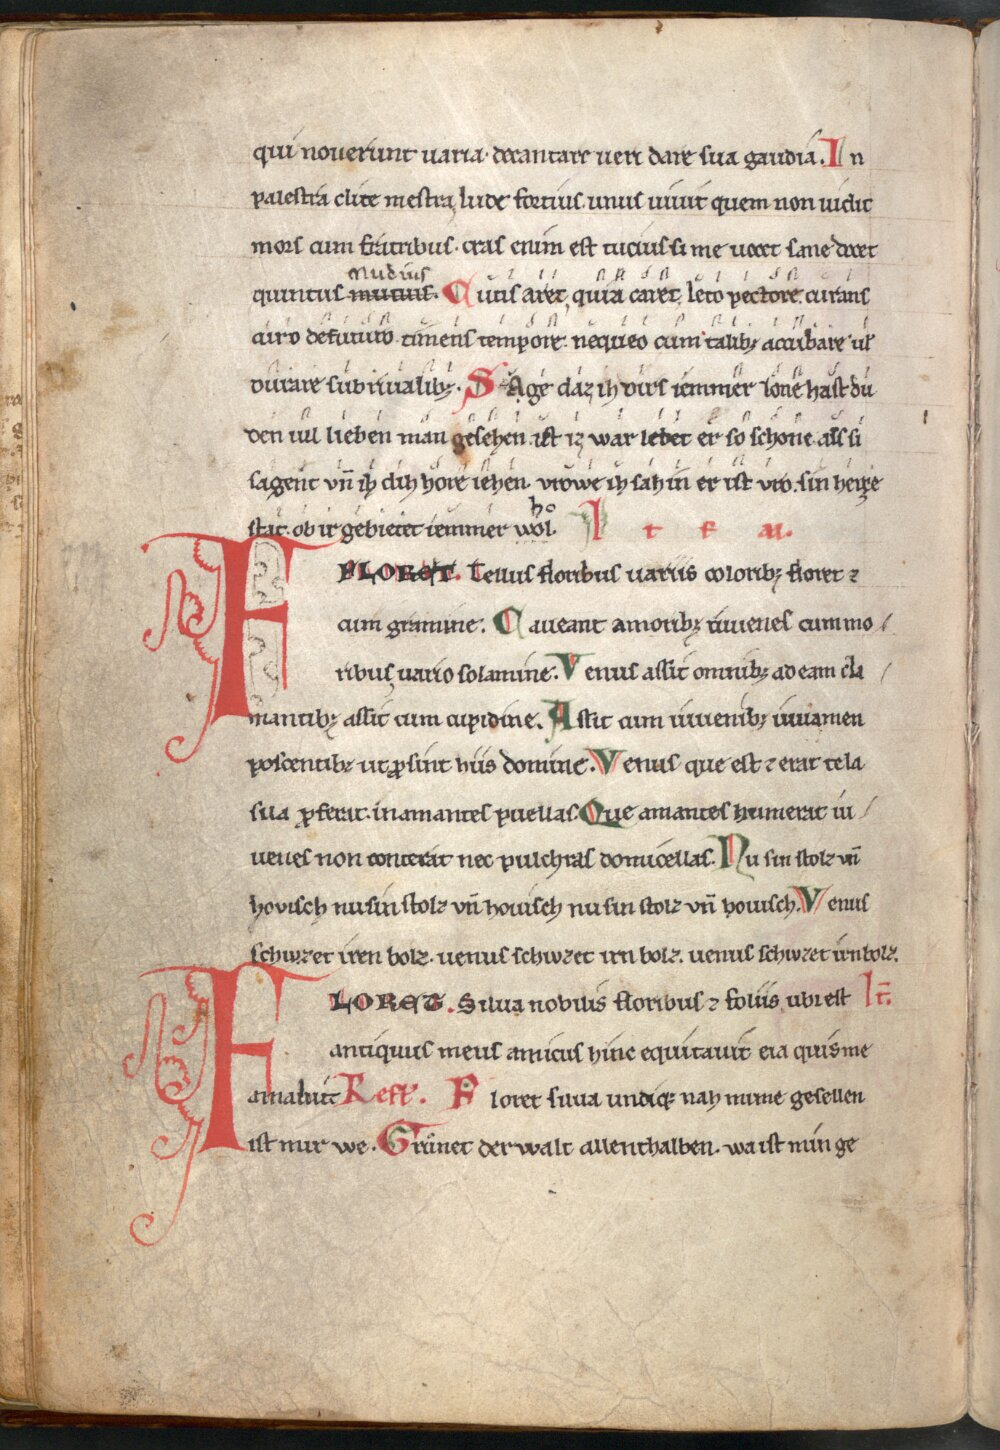 qui nouerunt uaria· decantare ueri dare sua gaudia. In
palestra elite mestra, lude fortius. unus uiuit quem non uidit
mors cum fratribus· cras enim est tucius si me uocet sane docet
nudius
quintus mutuus. Cutis aret, quia caret, leto pectore. curans
curo defuturo· timens tempore· nequeo cum talibꝫ accubare ul
ouirare sub riualibꝫ. Sage daz ih dirs iemmer lone hast du
den uil lieben man gesehen ist iz war lebet er so schone als si
sagent vñ ih dih hore iehen· vrowe ih sah in er ist vro. sin herze
ho
stat· ob ir gebietet iemmer wol. Item.
FLORET. Tellus floribus uariis coloribꝫ floret ⁊
cum gramine. Caueant amoribꝫ iuuenes cum mo/
ribuꝫ uario solamine. Venus assit omnibꝫ ad eam cla/
mantibꝫ assit cum cupidine. Assit cum iuuenibꝫ iuuamen
poscentibꝫ ut ꝓsint hiis domine. Venus que est ⁊ erat tela
sua ꝓferat· in amantes puellas. Que amantes humerat iu/
uenes non conterat nec pulchras domicellas. Nu sin stolz vñ
hovisch nu sin stolz vñ hovisch nu sin stolz vñ hovisch. Venus
schiuzet iren bolz· uenus schiuzet irn bolz. uenus schiuzet irn bolz.
FLORET. Silua nobilis floribus ⁊ foliis ubi est It̄.
antiquus meus amicus hinc equitauit eia quis me
amabit Refl. Floret silua undiqꝫ nah mime gesellen
ist mir we. Grůnet der walt allenthalben. wa ist min ge